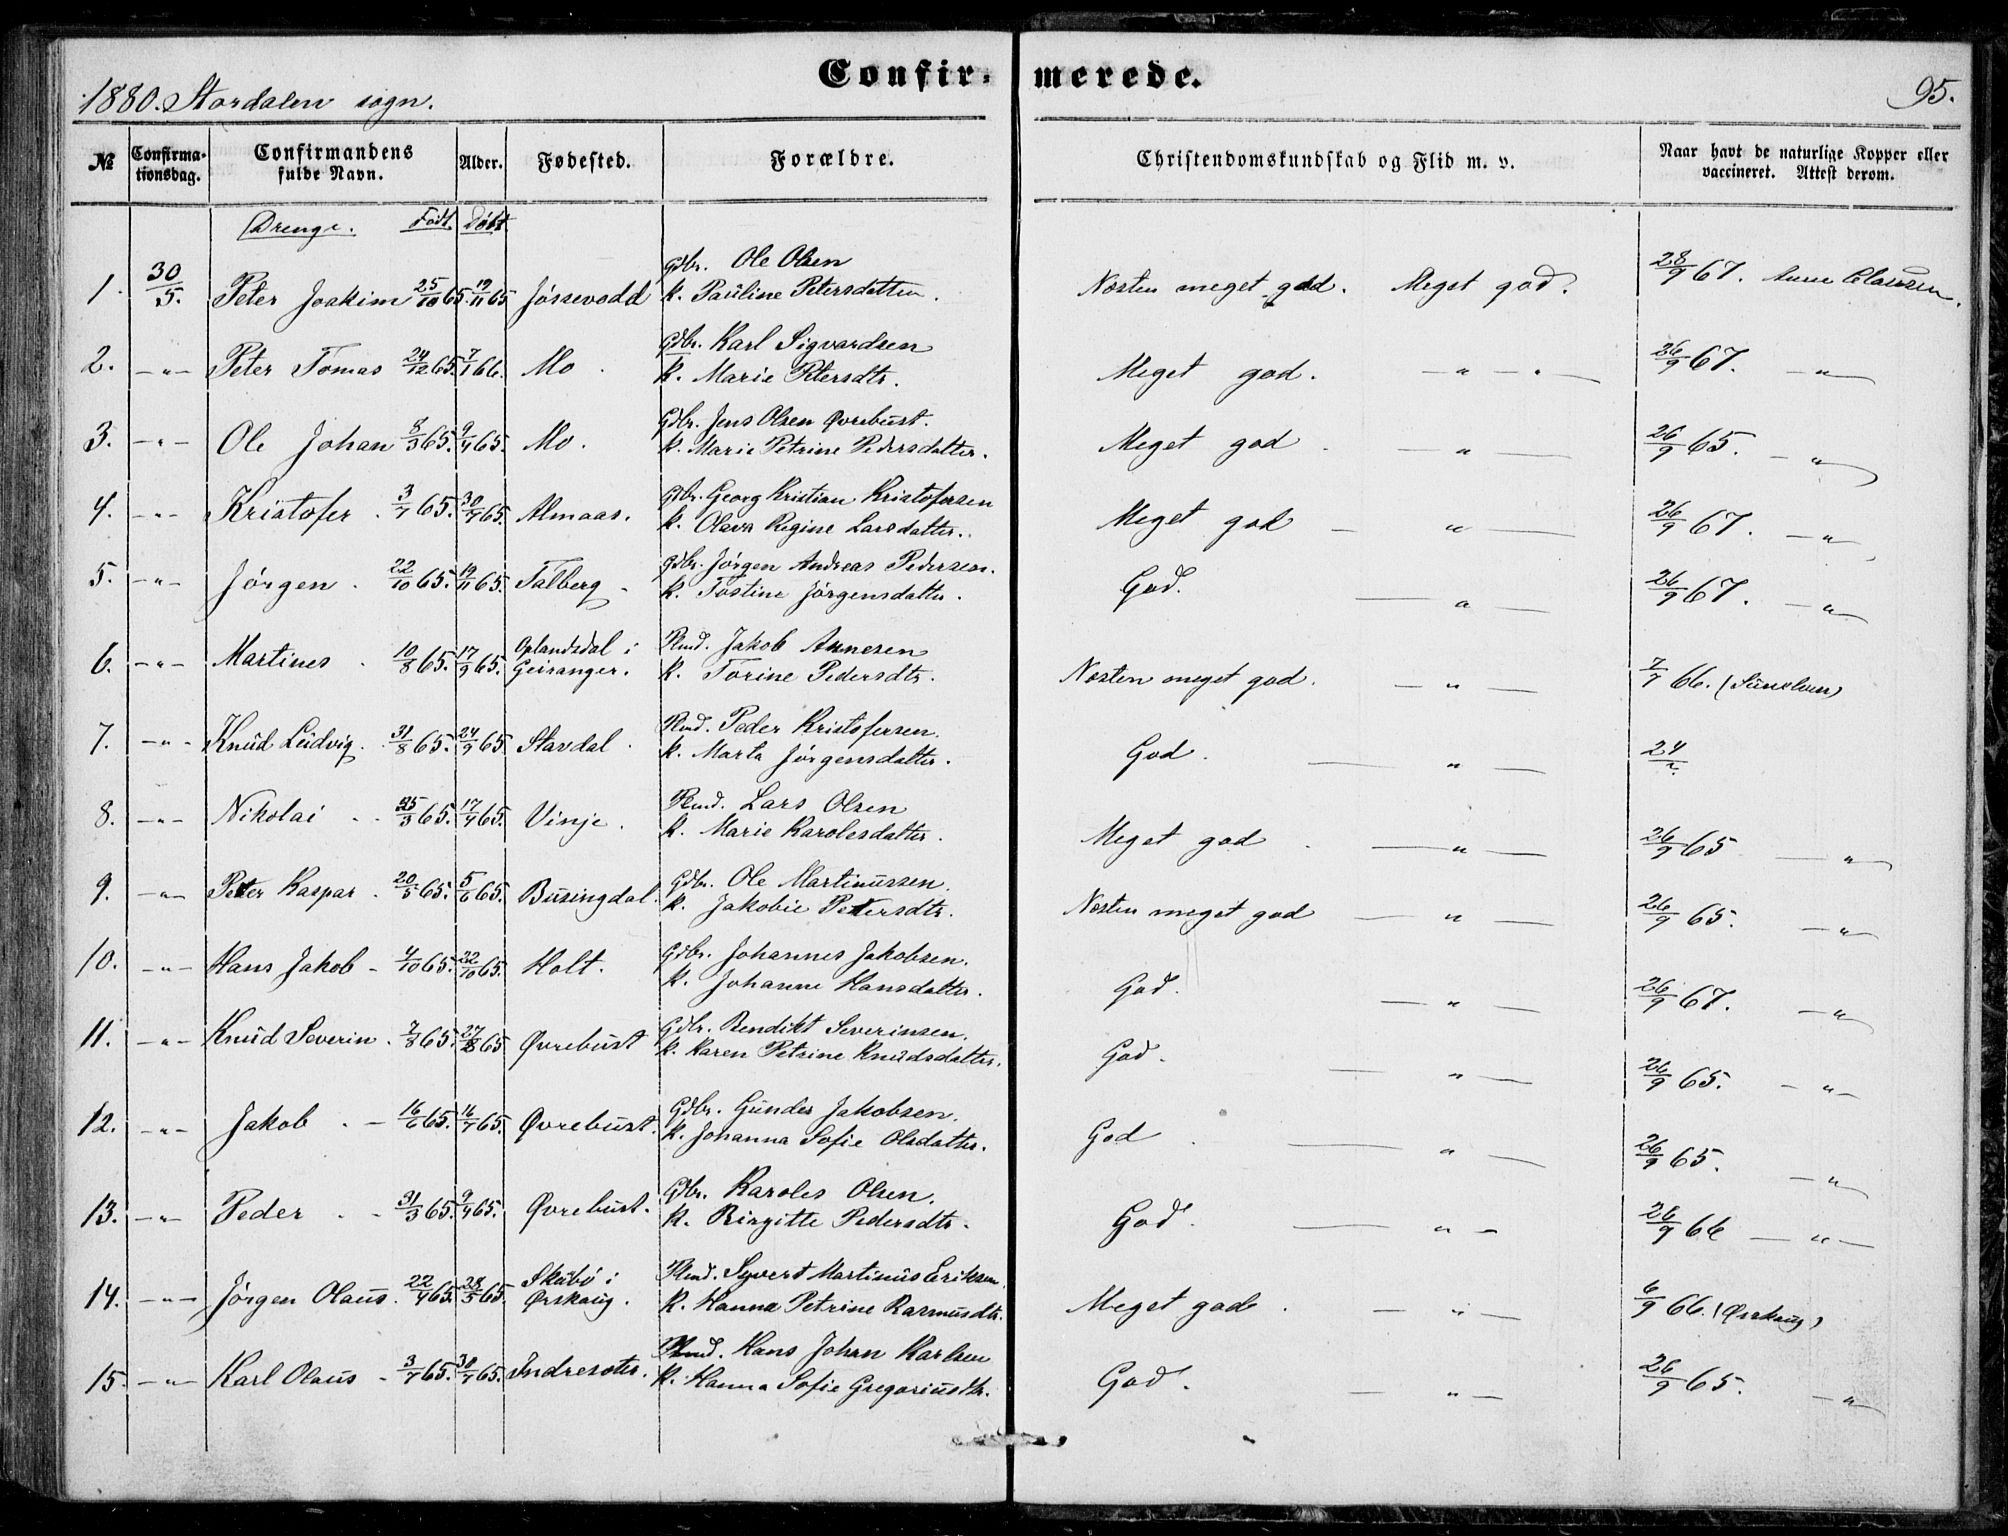 Confirmerede.
1880. Stordalen sogn. 95.
№ Confirmationsdag. Confirmandens fulde Navn. Alder. Fødested. Forældre. Christendomskundskab og Flid m. v. Naar havt de naturlige Kopper eller vaccineret. Attest derom.
Drenge. Født. Døbt
Gdbr. Ole Olsen
1. 30/5. Peter Joakim 25/10 65. 19/11 65 Jøssevodd K. Pauline Petersdatter. Næsten meget god. Meget god. 28/9 67. Anne Clausen.
Gdbr. Karl Sigvardsen
2. -„- Peter Tomas 24/12 65. 7/1 66. Mo. K. Marie Petersdtr. Meget god. -„-„- 26/9 67. -„-
Gdbr. Jens Olsen Øvrebust.
3. -„- Ole Johan 8/3 65. 9/4 65. Mo. K. Marie Petrine Pedersdatter. Meget god. -„- 26/9 65. -„-
Gdbr. Georg Kristian Kristofersen
4. -„- Kristofer. 3/7 65. 30/7 65. Almaas. K. Olava Regine Larsdatter. Meget god -„- 26/9 67. -„-
Gdbr. Jørgen Andreas Pedersen.
5. -„- Jørgen. 22/10 65. 19/11 65. Talberg K. Tostine Jørgensdatter. God. -„- 26/9 67. -„-
Oplandsdal i Plmd. Jakob Annesen
6. -„- Martines 10/8 65. 17/9 65. Geiranger. K. Torine Pedersdtr. Næsten meget god. -„- 7/7 66. (Sunelven)
Plmd. Peder Kristofersen.
7. -„- Knud Ludvig. 31/8 65. 24/9 65 Stavdal. K. Marta Jørgensdatter. God. -„- 24/
Plmd. Lars Olsen
8. -„- Nikolai 25/3 65. 17/4 65. Vinje. K. Marie Karolesdatter. Meget god. -„- 26/9 65 -„-
Gdbr. Ole Martinussen.
9. -„- Peter Kaspar. 20/5 65. 5/6 65. Busingdal. K. Jakobie Petersdtr. Næsten meget god -„- 26/9 65. -„-
Gdbr. Johannes Jakobsen.
10. -„- Hans Jakob - 4/10 65. 22/10 65. Holt. K. Johanne Hansdatter. God. -„- 26/9 67. -„-
Gdbr. Bendikt Severinsen.
11. -„- Knud Severin. 7/8 65. 27/8 65 Øvrebust K. Karen Petrine Knudsdatter. God. -„- 26/9 65. -„-
Gdbr. Gunder Jakobsen.
12. -„- Jakob. - 16/6 65. 16/7 65. Øvrebust. K. Johanna Sofie Olsdatter. God. -„- 26/9 65. -„-
Gdbr. Karoles Olsen.
13. -„- Peder 31/3 65. 9/4 65. Øvrebust. K. Birgitte Pedersdtr. God. -„- 26/9 66 -„-
Skubø i Plmd. Syvert Martinus Eriksen.
14. -„- Jørgen Olaus. 22/4 65. 28/5 65. Ørskaug. K. Hanna Petrine Rasmusdtr. Meget god. -„- 6/9 66. (Ørskaug)
Plmd. Hans Johan Karlsen
15. -„- Karl Olaus - 3/7 65. 30/7 65. Indresæter. K. Hanna Sofie Gregoriusdtr. God. -„- 26/9 65. -„-